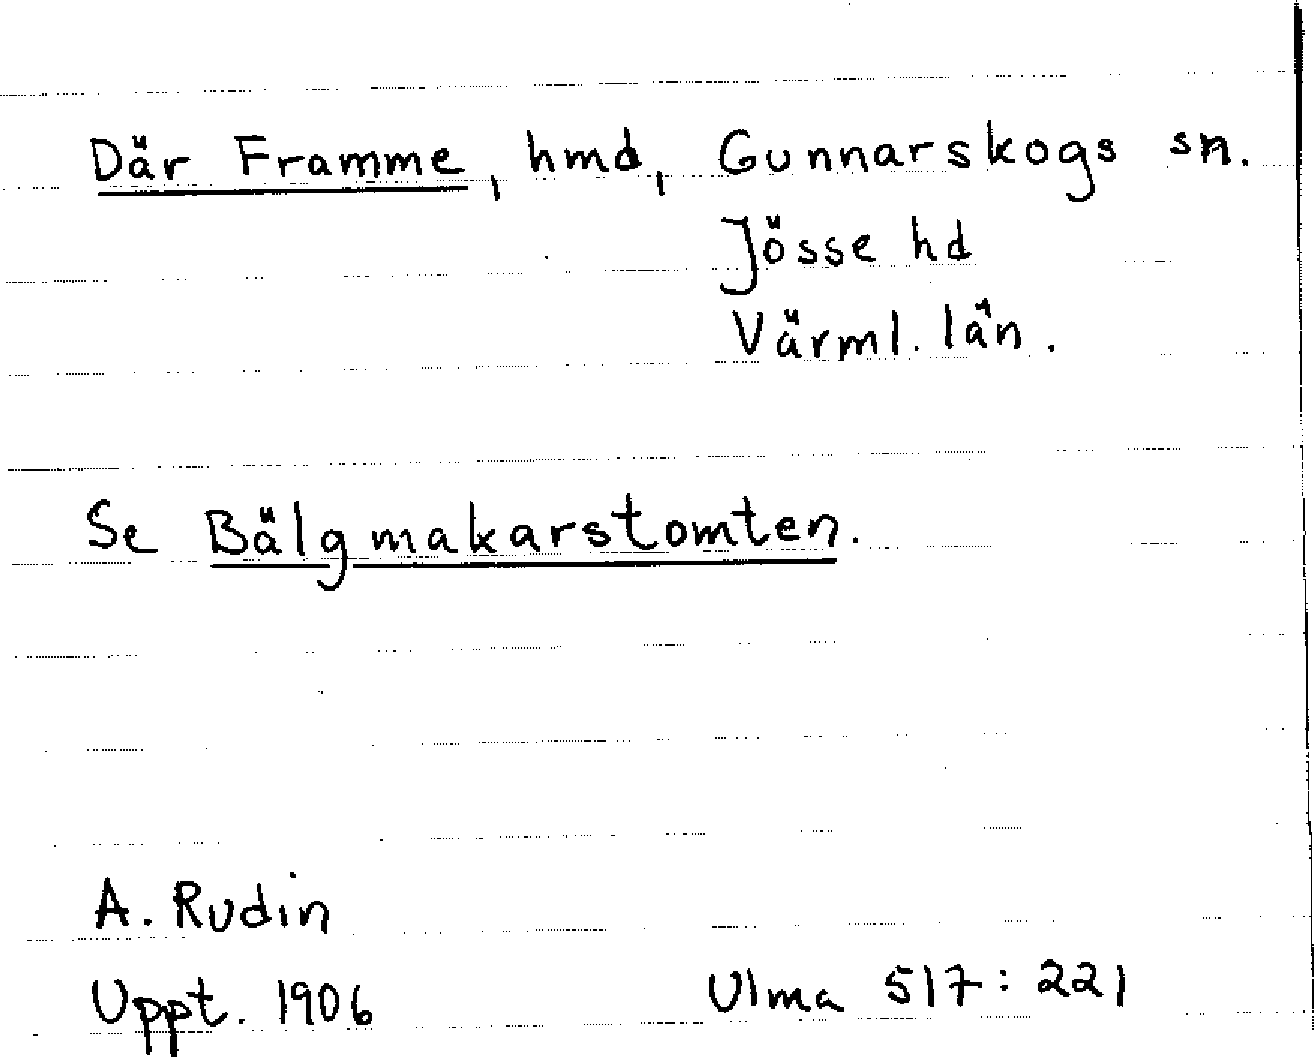 Där Framme, hmd, Gunnarskogs sn.
Jösse hd
Värml. län.
Se Bälgmakarstomten.
A. Rudin
Uppt. 1906 Ulma 517:221